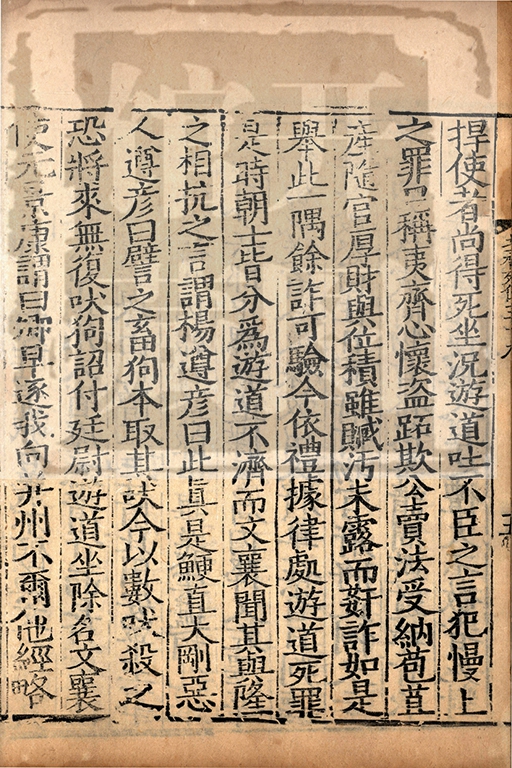 捍使者尚得死坐況遊道吐不臣之言犯慢上
之罪口稱夷齊心懷盜跖欺公賣法受納苞苴
産隨官厚財與位積雖贓汚未露而姦詐如是
舉此一隅餘詐可驗今依禮據律處遊道死罪
是時朝士皆分爲遊道不濟而文襄聞其與隆
之相抗之言謂楊遵彦曰此真是鯁直大剛惡
人遵彦曰譬之畜狗本取其吠今以數吠殺之
恐將來無復吠狗詔付廷尉遊道坐除名文襄
使元景康謂曰卿早逐我向并州不爾他經略